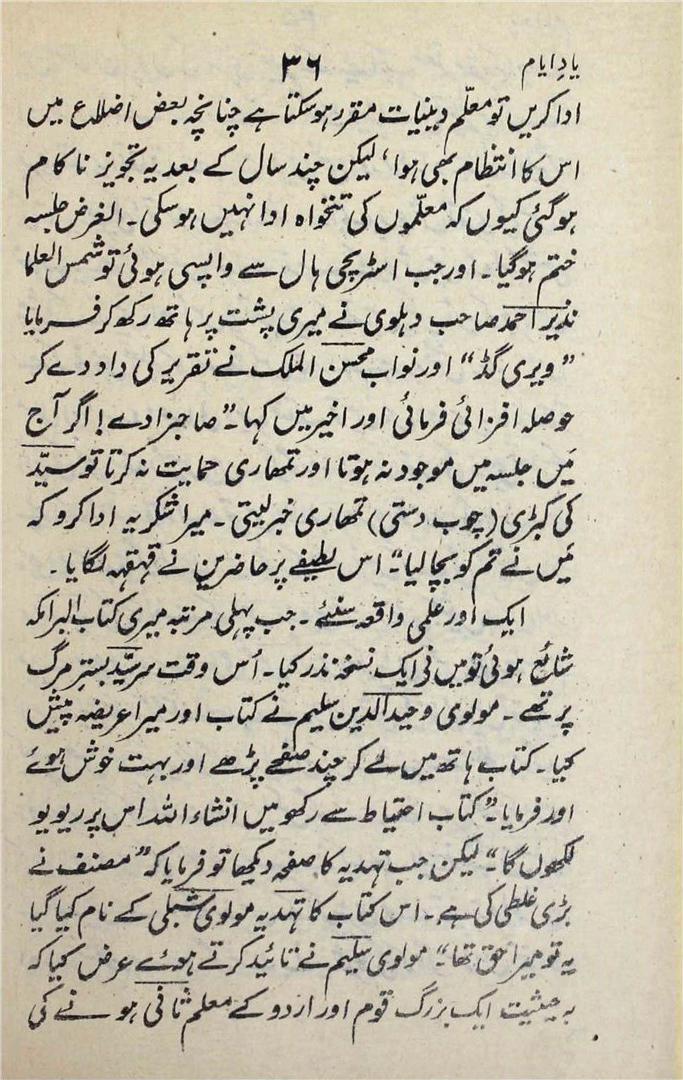 یادِ ایام
۳۶
ادا کریں تو معلّم دینیات مقرر ہو سکتا ہے چنانچہ بعض اضلاع میں
اس کا انتظام بھی ہوا، لیکن چند سال کے بعد یہ تجویز ناکام
ہو گئی کیوں کہ معلّموں کی تنخواہ ادا نہیں ہو سکی۔ الغرض جلسہ
ختم ہو گیا۔ اور جب اسٹریچی ہال سے واپسی ہوئی تو شمس العلما
نذیر احمد صاحب دہلوی نے میری پشت پر ہاتھ رکھ کر فرمایا
”ویری گڈ“ اور نواب محسن الملک نے تقریر کی داد دے کر
حوصلہ افزائی فرمائی اور اخیر میں کہا۔ ”صاحبزادے! اگر آج
مَیں جلسہ میں موجود نہ ہوتا اور تمھاری حمایت نہ کرتا تو سیّد
کی کبڑی (چوب دستی) تمھاری خبر لیتی۔ میرا شکریہ ادا کرو کہ
مَیں نے تم کو بچا لیا“ اس لطیفے پر حاضرین نے قہقہہ لگایا۔
ایک اور علمی واقعہ سنئے۔ جب پہلی مرتبہ میری کتاب البرامکہ
شائع ہوئی تو میں نے ایک نسخہ نذر کیا۔ اُس وقت سر سیّد بسترِ مرگ
پر تھے۔ مولوی وحید الدین سلیم نے کتاب اور میرا عریضہ پیش
کیا۔ کتاب ہاتھ میں لے کر چند صفحے پڑھے اور بہت خوش ہوئے
اور فرمایا۔ ”کتاب احتیاط سے رکھو میں انشاء اللہ اس پر ریویو
لکھوں گا“ لیکن جب تہدیہ کا صفحہ دیکھا تو فرمایا کہ ”مصنف نے
بڑی غلطی کی ہے۔ اس کتاب کا تہدیہ مولوی شبلی کے نام کیا گیا
یہ تو میرا حق تھا“ مولوی سلیم نے تائید کرتے ہوئے عرض کیا کہ
بہ حیثیت ایک بزرگ قوم اور اردو کے معلم ثانی ہونے کی